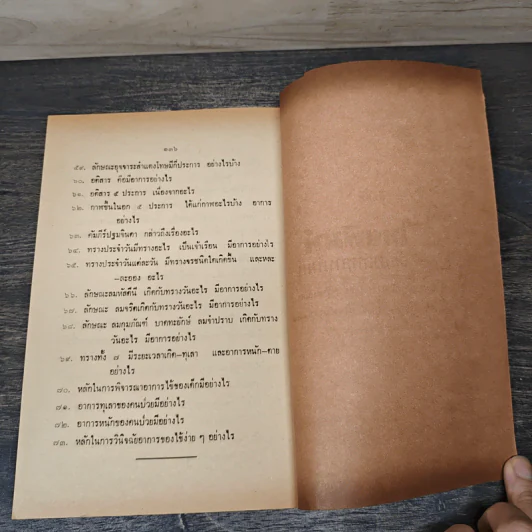 ๑๓๖
๕๙. ลักษณะอุจจาระสำแดงโทษมีกี่ประการ อย่างไรบ้าง
๖๐. อติสาร คือมีอาการอย่างไร
๖๑. อติสาร ๕ ประการ เนื่องจากอะไร
๖๒. กาฬขึ้นในอก ๕ ประการ ได้แก่กาฬอะไรบ้าง อาการ
อย่างไร
๖๓. คัมภีร์ปฐมจินดา กล่าวถึงเรื่องอะไร
๖๔. ทรางประจำวันมีทรางอะไร เป็นเจ้าเรือน มีอาการอย่างไร
๖๕. ทรางประจำวันแต่ละวัน มีทรางจรชนิดใดเกิดขึ้น และหละ
–ละออง อะไร
๖๖. ลักษณะลมหัสดีนี เกิดกับทรางวันอะไร มีอาการอย่างไร
๖๗. ลักษณะ ลมจริตเกิดกับทรางวันอะไร มีอาการอย่างไร
๖๘. ลักษณะ ลมกุมภัณฑ์ บาดทะยักษ์ ลมจำปราบ เกิดกับทราง
วันอะไร มีอาการอย่างไร
๖๙. ทรางทั้ง ๗ มีระยะเวลาเกิด–ทุเลา และอาการหนัก–ตาย
อย่างไร
๗๐. หลักในการพิจารณาอาการไข้ของเด็กมีอย่างไร
๗๑. อาการทุเลาของคนป่วยมีอย่างไร
๗๒. อาการหนักของคนป่วยมีอย่างไร
๗๓. หลักในการวินิจฉัยอาการของไข้ง่าย ๆ อย่างไร